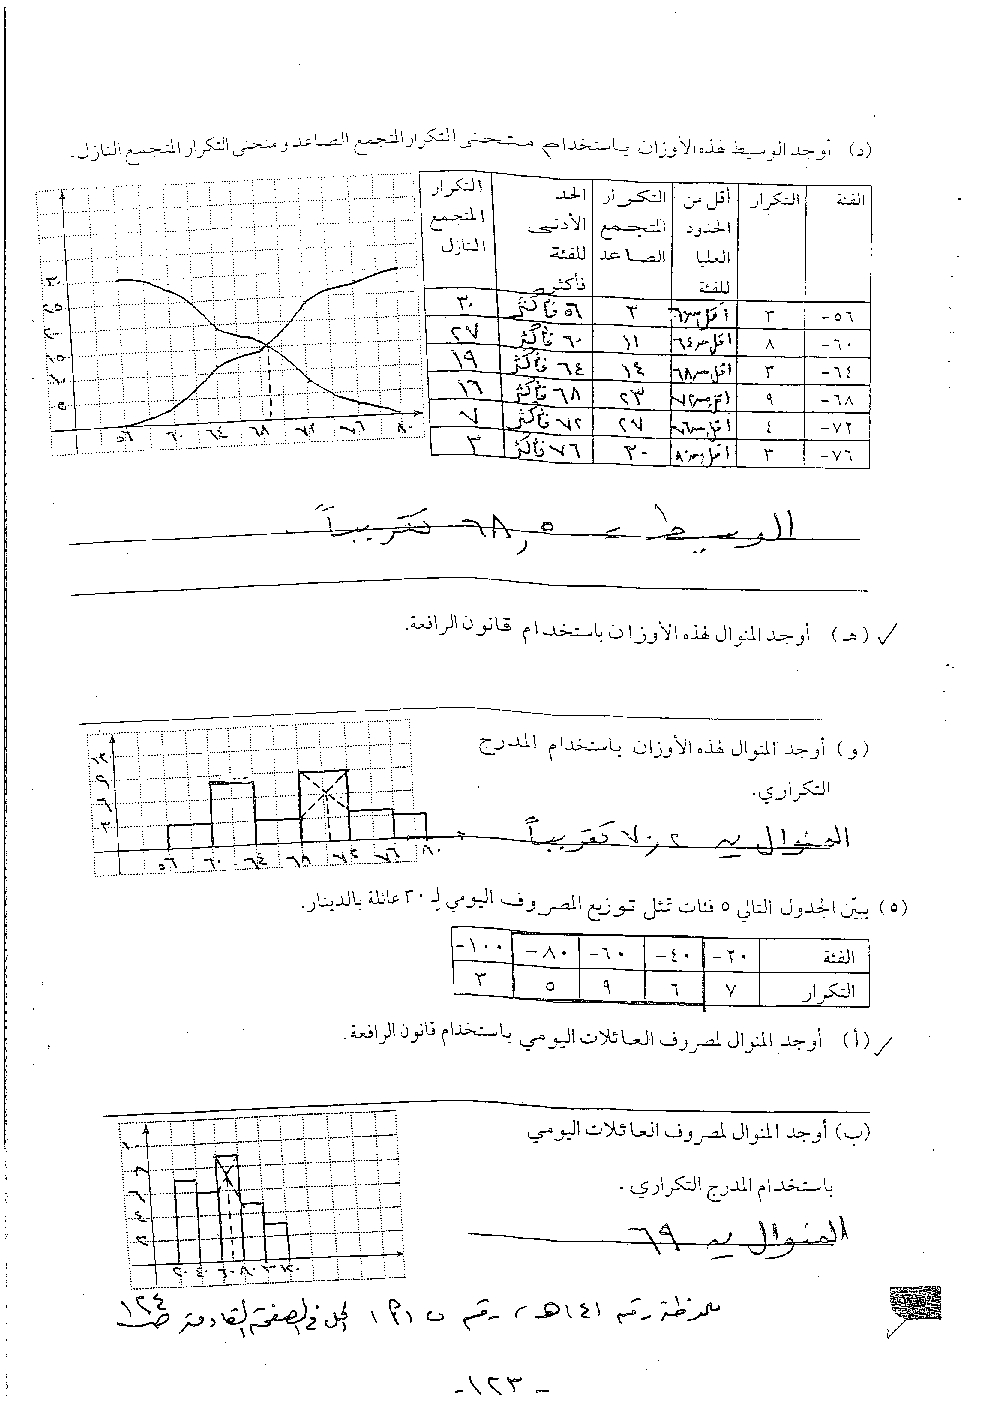 (د) أوجد الوسيط لهذه الأوزان باستخدام منحنى التكرار المتجمع الصاعد ومنحنى التكرار المتجمع النازل.
الفئة التكرار أقل من الحدود العليا للفئة التكرار المتجمع الصاعد الحد الأدنى للفئة فأكثر التكرار المتجمع النازل
٥٦- ٣ أقل من ٦٠ ٣ ٥٦ فأكثر ٣٠
٦٠- ٨ أقل من ٦٤ ١١ ٦٠ فأكثر ٢٧
٦٤- ٣ أقل من ٦٨ ١٤ ٦٤ فأكثر ١٩
٦٨- ٩ أقل من ٧٢ ٢٣ ٦٨ فأكثر ١٦
٧٢- ٤ أقل من ٧٦ ٢٧ ٧٢ فأكثر ٧
٧٦- ٣ أقل من ٨٠ ٣٠ ٧٦ فأكثر ٣
٣٠
٢٥
٢٠
١٥
١٠
٥
٥٦ ٦٠ ٦٤ ٦٨ ٧٢ ٧٦ ٨٠
الوسيط ≃ ٦٨,٥ تقريباً
(هـ) أوجد المنوال لهذه الأوزان باستخدام قانون الرافعة.
(و) أوجد المنوال لهذه الأوزان باستخدام المدرج
التكراري.
المنوال ≃ ٧٠,٢ تقريباً
١٢
٩
٦
٣
٥٦ ٦٠ ٦٤ ٦٨ ٧٢ ٧٦ ٨٠
(٥) يبيّن الجدول التالي ٥ فئات تمثل توزيع المصروف اليومي لـ ٣٠ عائلة بالدينار.
الفئة ٢٠- ٤٠- ٦٠- ٨٠- ١٠٠-
التكرار ٧ ٦ ٩ ٥ ٣
(أ) أوجد المنوال لمصروف العائلات اليومي باستخدام قانون الرافعة.
(ب) أوجد المنوال لمصروف العائلات اليومي
باستخدام المدرج التكراري.
المنوال ≃ ٦٩
١٠
٨
٦
٤
٢
٢٠ ٤٠ ٦٠ ٨٠
الحل في الصفحة القادمة ص ١٢٤
- ١٢٣ -